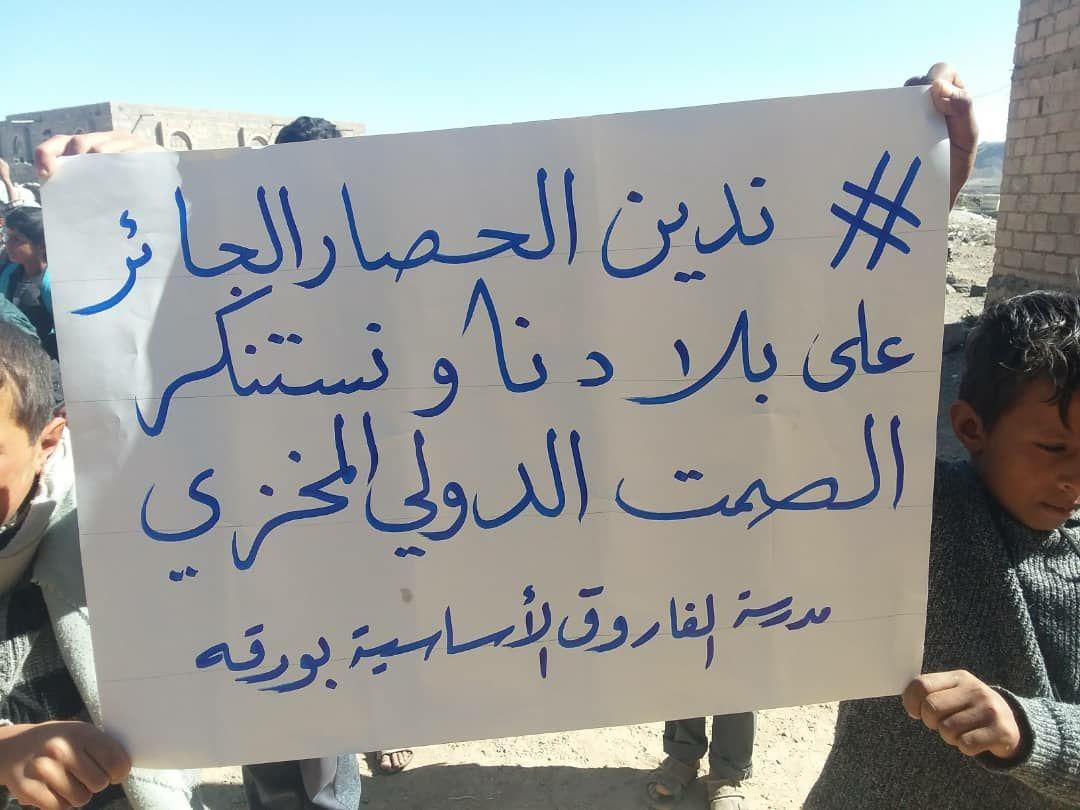 # ندين الحصار الجائر
على بلادنا ونستنكر
الصمت الدولي المخزي
مدرسة الفاروق الأساسية بورقه